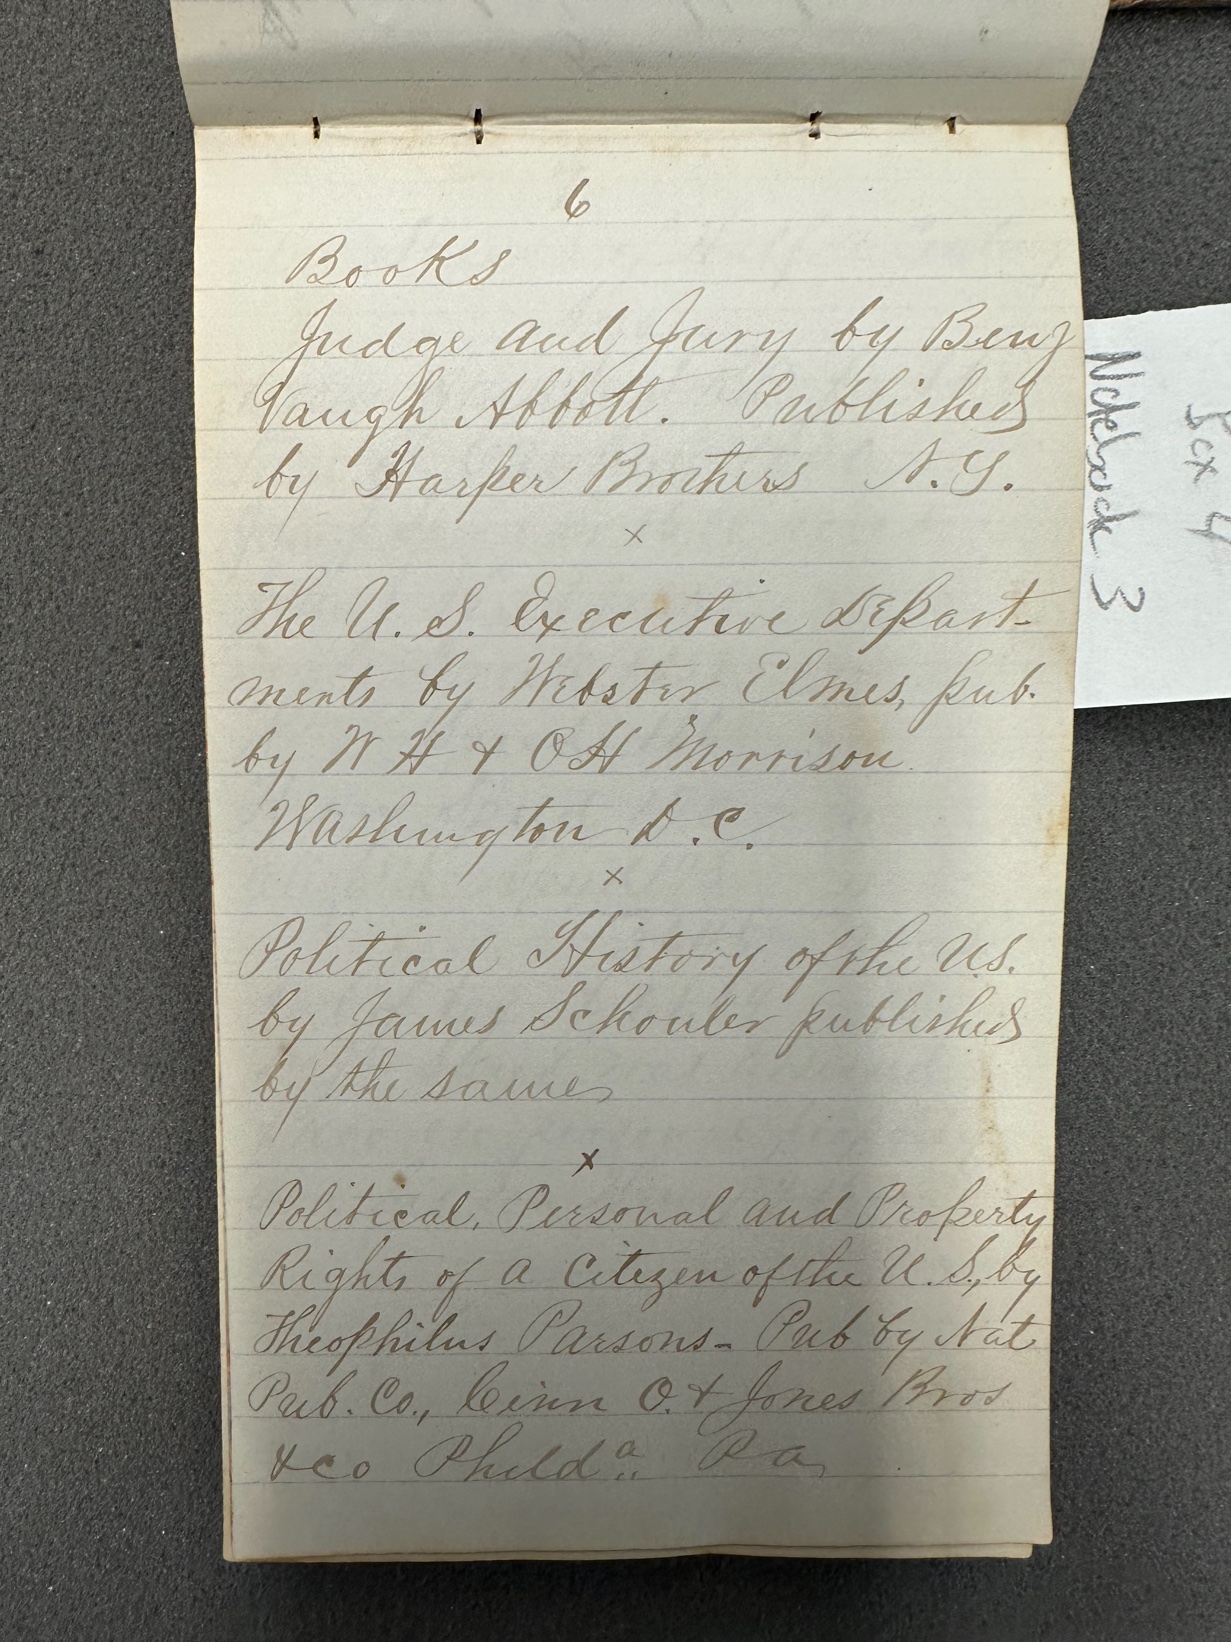 6
Books
Judge and Jury by Benj
Vaugh Abbott. Published
by Harper Brothers N.Y.
x
The U. S. Executive Depart-
ments by Webster Elmes, pub.
by W H & O H Morrison
Washington D.C.
x
Political History of the U.S.
by James Schouler published
by the same
x
Political, Personal and Property
Rights of a Citezen of the U. S., by
Theophilus Parsons - Pub by Nat
Pub. Co., Cinn O. & Jones Bros
& co Philda. Pa
Box 4
Notebook 3